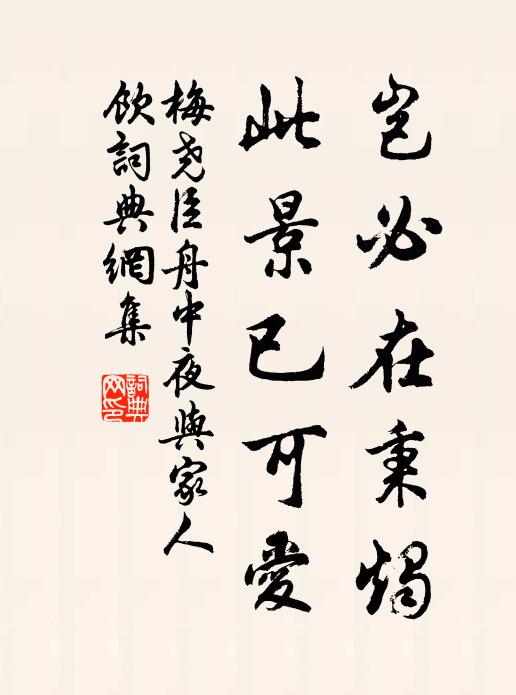 岂必在秉烛
此景已可愛
梅尧臣舟中夜與家人
飲詞典網集
詞典
网印